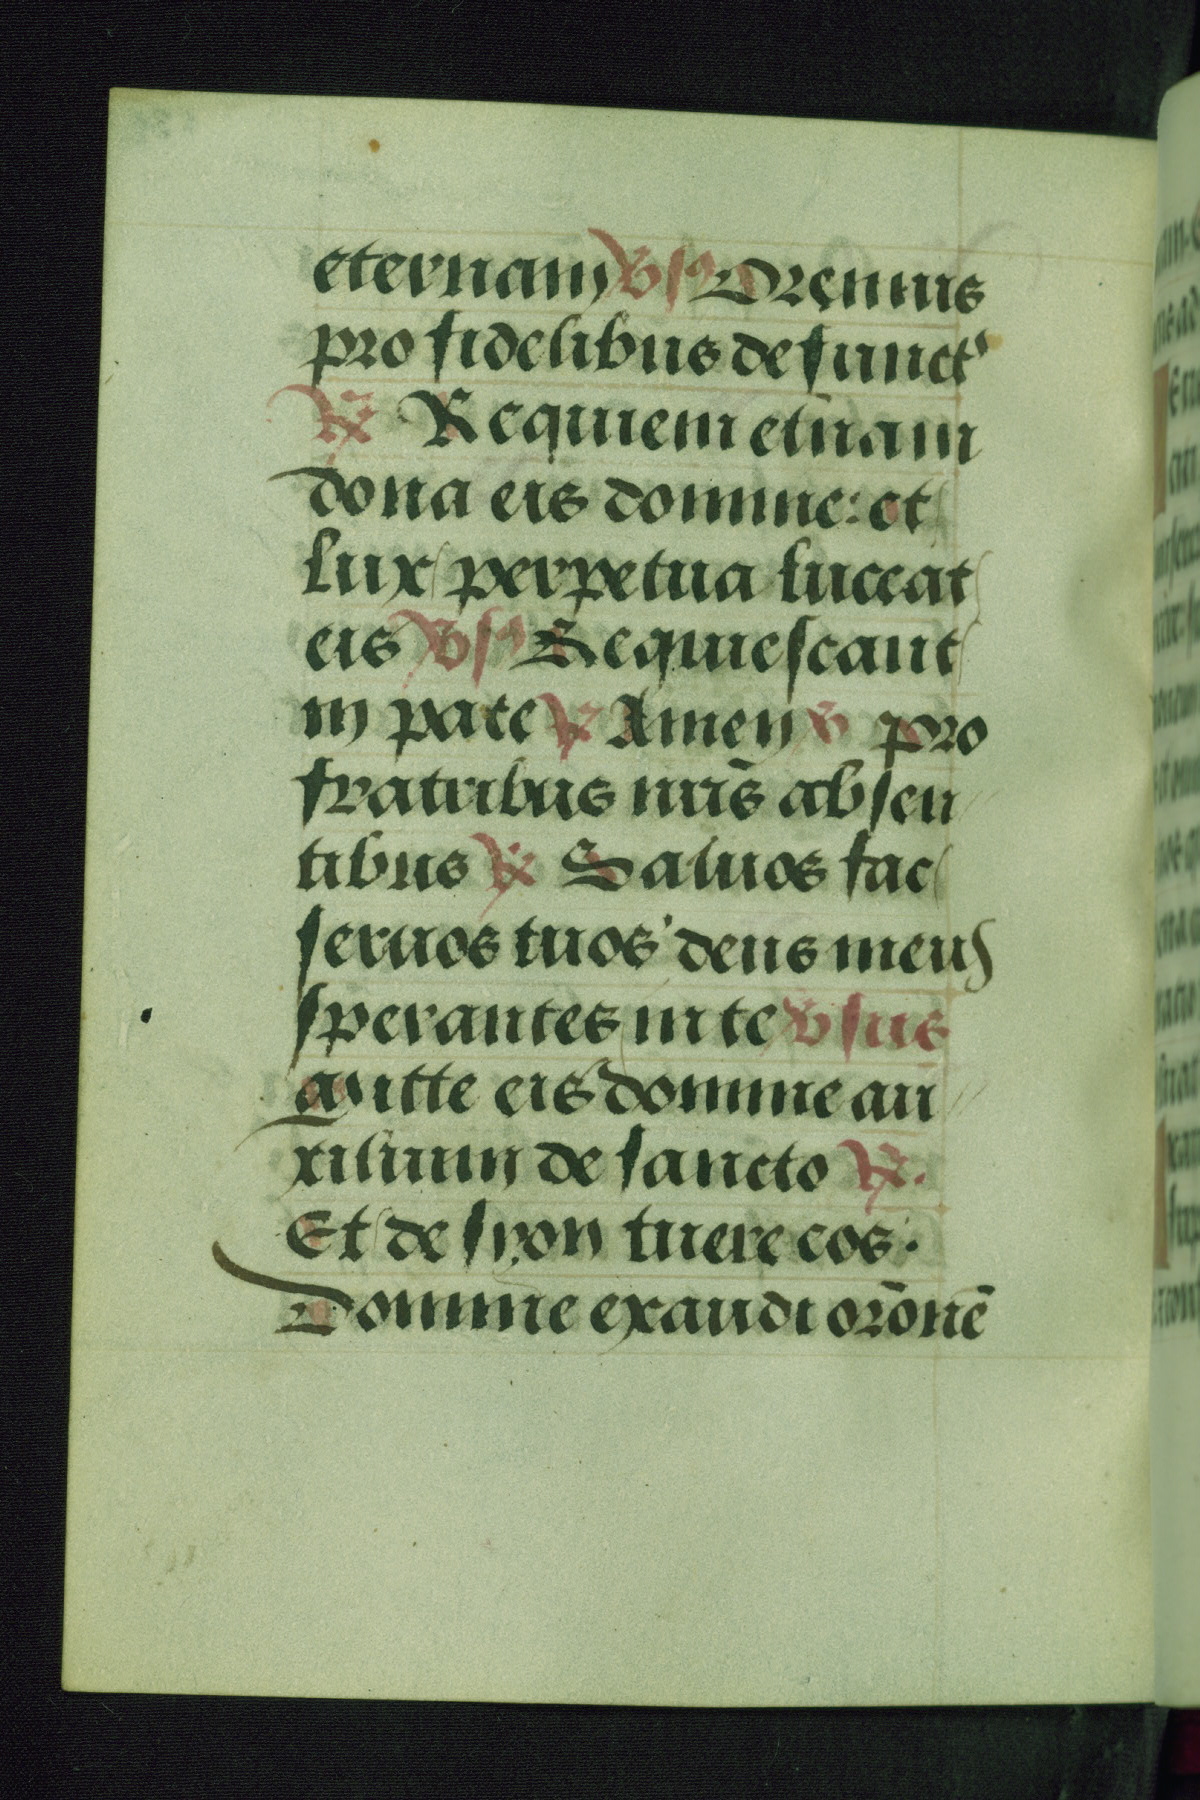 eternam vsꝰ Oremus
pro fidelibus defunct'
℟ Requiem etnam
dona eis domine: et
lux perpetua luceat
eis vsꝰ Requiescant
in pace ℟ Amen v pro
fratribus nris̄ absen
tibus ℟ Saluos fac
seruos tuos' deus meus
sperantes in te vsus
Mitte eis domine au
xilium de sancto ℟.
Et de syon tuere eos.
Domine exaudi orōnē